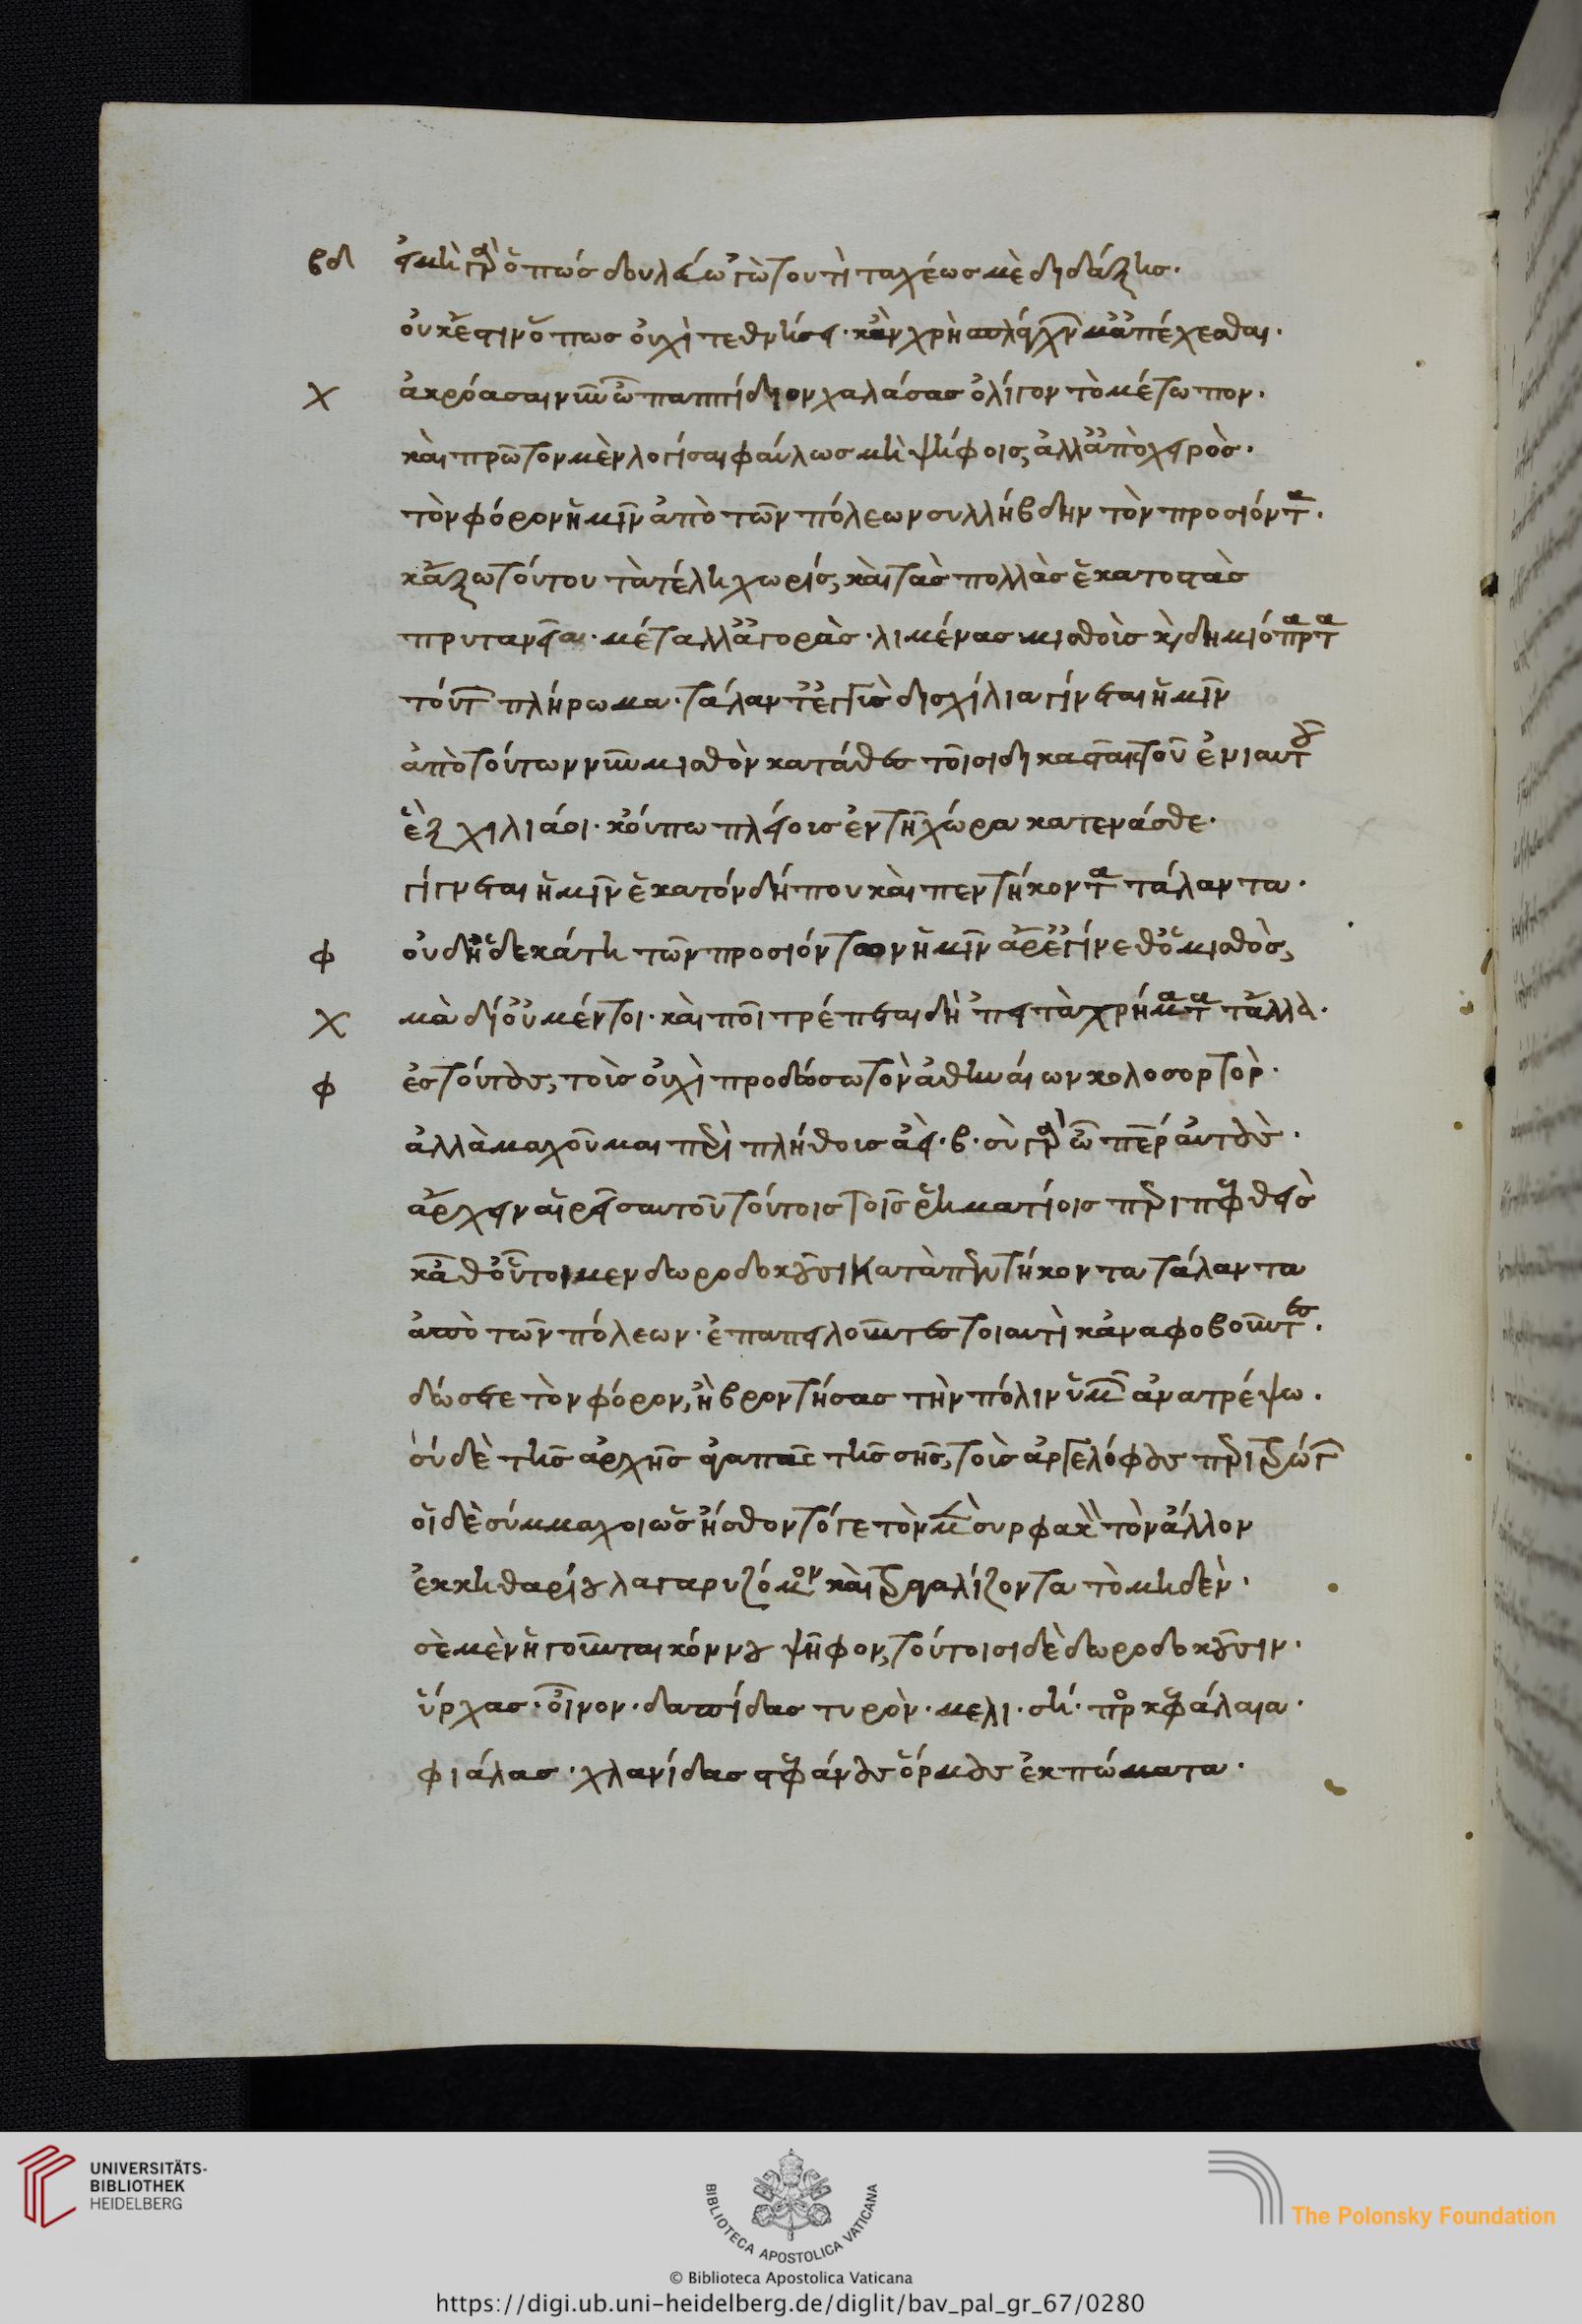 βδ εἰ μὴ γὰρ ὅπως δουλεύω 'γὼ τουτὶ ταχέως με διδάξεις.
οὐκ ἔστιν ὅπως οὐχὶ τεθνήσει. κἂν χρὴ σπλάγχν μ' ἀπέχεσθαι.
χ ἀκρόασαι νῦν ὦ παππίδιον χαλάσας ὀλίγον τὸ μέτωπον.
καὶ πρῶτον μὲν λόγισαι φαύλως μὴ ψήφοις, ἀλλ' ἀπὸ χειρὸς.
τὸν φόρον ἡμῖν ἀπὸ τῶν πόλεων συλλήβδην τὸν προσιόντα.
κἄξω τούτου τὰ τέλη χωρίς, καὶ τὰς πολλὰς ἑκατοστὰς
πρυτανεῖα. μέταλλ' ἀγορὰς. λιμένας μισθοὺς καὶ δημιόπρατα
τούτ πλήρωμα. τάλαντ' ἐγγὺς δισχίλια γίνεται ἡμῖν
ἀπὸ τούτων νῦν μισθὸν κατάθες τοῖσι δικασταῖς τοῦ ἐνιαυτοῦ
ἓξ χιλιάσι. κοὔπω πλείους ἐν τῇ χώρα κατενάσθε.
γίγνεται ἡμῖν ἑκατὸν δήπου καὶ πεντήκοντα τάλαντα.
φ οὐδ' ἡ δεκάτη τῶν προσιόντων ἡμῖν ἆρ' ἐγίνεθ' ὁ μισθὸς,
χ μὰ δί' οὐ μέντοι. καὶ ποῖ τρέπεται δὴ 'πει τὰ χρήματα τἄλλα.
φ ἐς τούτους, τοὺς οὐχὶ προδώσω τὸν ἀθηναίων κολοσορτὸν.
ἀλλὰ μαχοῦμαι περὶ πλήθους ἀεὶ. β. σὺ γὰρ ὦ πάτερ αὐτοὺς.
ἄρχειν αἱρεῖ σαυτοῦ τούτοις τοῖς ῥηματίοις περιπεφθεὶς
κᾆθ' οὗτοι μεν δωροδοκοῦσι κατὰ πεντήκοντα τάλαντα
ἀπὸ τῶν πόλεων. ἐπαπειλοῦντες τοιαυτὶ κἀναφοβοῦντες.
δώσετε τὸν φόρον, ἢ βροντήσας τὴν πόλιν ὑμῶν ἀνατρέψω.
σύ δὲ τῆς ἀρχῆς τῆς σῆς, τοὺς ἀργελόφους περιτρώγων
οἱ δὲ σύμμαχοι ὡς ᾔσθοντό γε τὸν μὲν σύρφακα τὸν ἄλλον
ἐκ κηθαρίου λαγαρυζόμενον καὶ τραγαλίζοντα τὸ μηδὲν.
σὲ μὲν ἡγοῦνται κόννου ψῆφον, τούτοισι δὲ δωροδοκοῦσιν.
ὕρχας. οἶνον. δαπίδας τυρὸν. μελι. ση. προσκεφάλαια.
φιάλας. χλανίδας στεφάνους ὅρμους ἐκπώματα.
UNIVERSITÄTS-
BIBLIOTHEK
HEIDELBERG
BIBLIOTECA APOSTOLICA VATICANA
The Polonsky Foundation
© Biblioteca Apostolica Vaticana
https://digi.ub.uni-heidelberg.de/diglit/bav_pal_gr_67/0280